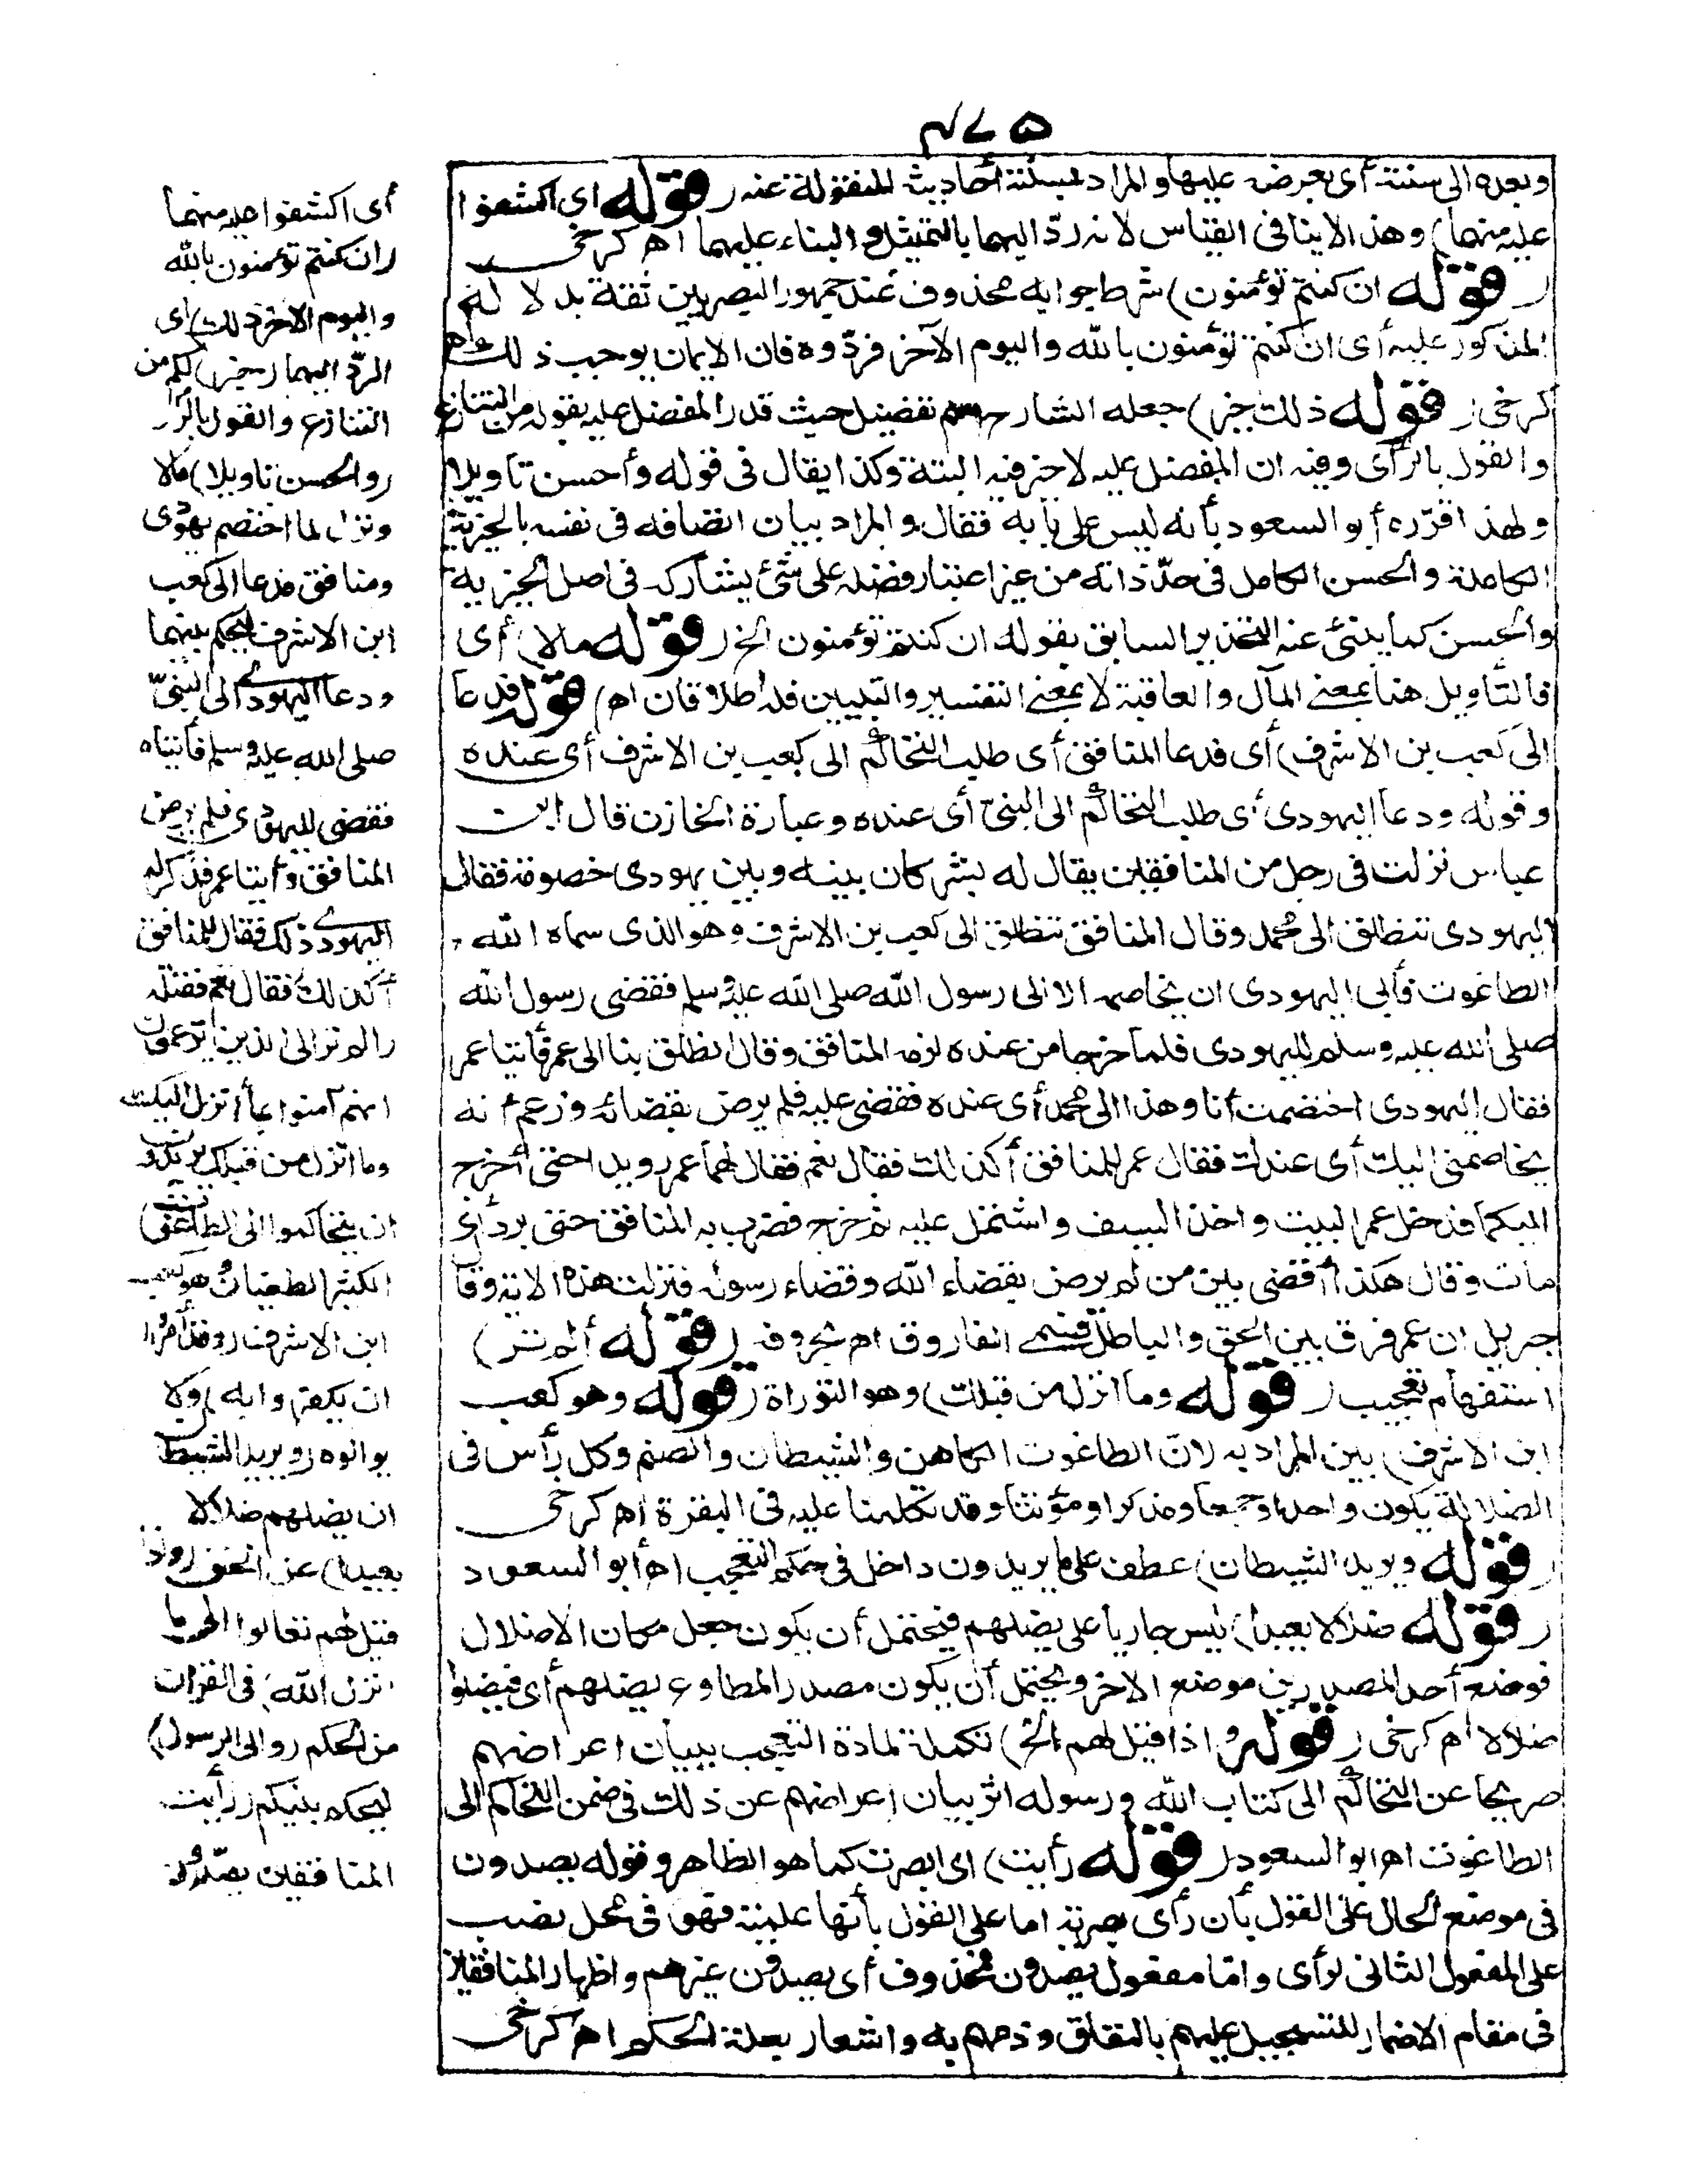 وبعده الى سنته أى يعرض عليها والمراد بسنته أحاديثه المنقولة عنه (قوله اى اكشفوا
عليه منهما) وهذا لا ينافى القياس لانه ردّ اليهما بالتمثيل والبناء عليهما اه كرخى
(قوله ان كنتم تؤمنون) شرط جوابه محذوف عند جمهور البصريين ثقة بدلالة
المذكور عليه أى ان كنتم تؤمنون بالله واليوم الآخر فردّوه فان الايمان يوجب ذلك اه
كرخى (قوله ذلك خير) جعله الشارح اسم تفضيل حيث قدر المفضل عليه بقوله من التنازع
والقول بالرأى وفيه ان المفضل عليه لا خير فيه البتة وكذا يقال فى قوله وأحسن تأويلا
ولهذا قرّره أبو السعود بأنه ليس على بابه فقال والمراد بيان اتصافه فى نفسه بالخيرية
الكاملة والحسن الكامل فى حدّ ذاته من غير اعتبار فضله على شئ يشاركه فى اصل الخيرية
والحسن كما ينبئ عنه التحذير السابق بقوله ان كنتم تؤمنون الخ (قوله مآلا) أى
فالتأويل هنا بمعنى المآل والعاقبة لا بمعنى التفسير والتبيين فله اطلاقان اه (قوله فدعا
الى كعب بن الاشرف) أى فدعا المنافق أى طلب التحاكم الى كعب بن الاشرف أى عنده
وقوله ودعا اليهودى أى طلب التحاكم الى النبىّ أى عنده وعبارة الخازن قال ابن
عباس نزلت فى رجل من المنافقين يقال له بشر كان بينه وبين يهودى خصومة فقال
اليهودى ننطلق الى محمد وقال المنافق ننطلق الى كعب بن الاشرف وهو الذى سماه الله
الطاغوت فأبى اليهودى ان يخاصمه الا الى رسول الله صلى الله عليه وسلم فقضى رسول الله
صلى الله عليه وسلم لليهودى فلما خرجا من عنده لزمه المنافق وقال انطلق بنا الى عمر فأتيا عمر
فقال اليهودى اختصمت أنا وهذا الى محمد أى عنده فقضى عليه فلم يرض بقضائه وزعم أنه
يخاصمنى اليك أى عندك فقال عمر للمنافق أكذلك فقال نعم فقال لهما عمر رويدا حتى أخرج
اليكما فدخل عمر البيت واخذ السيف واشتمل عليه ثم خرج فضرب به المنافق حتى برد أى
مات وقال هكذا أقضى بين من لم يرض بقضاء الله وقضاء رسوله فنزلت هذه الاية وقال
جبريل ان عمر فرق بين الحق والباطل فسمى الفاروق اه بحروفه (قوله ألم تر)
استفهام تعجيب (قوله وما انزل من قبلك) وهو التوراة (قوله وهو كعب
ابن الاشرف) بين المراد به لان الطاغوت الكاهن والشيطان والصنم وكل رأس فى
الضلالة يكون واحدا وجمعا ومذكرا ومؤنثا وقد تكلمنا عليه فى البقرة اه كرخى
(قوله ويريد الشيطان) عطف على يريدون داخل فى حكم التعجيب اه أبو السعود
(قوله ضلالا بعيدا) ليس جاريا على يضلهم فيحتمل أن يكون جعل مكان الاضلال
فوضع أحد المصدرين موضع الاخر ويحتمل أن يكون مصدر المطاوع يضلهم أى فيضلوا
ضلالا اه كرخى (قوله واذا قيل لهم الخ) تكملة لمادة التعجيب ببيان اعراضهم
صريحا عن التحاكم الى كتاب الله ورسوله اثر بيان اعراضهم عن ذلك فى ضمن التحاكم الى
الطاغوت اه ابو السعود (قوله رأيت) اى ابصرت كما هو الظاهر وقوله يصدون
فى موضع الحال على القول بأن رأى بصرية اما على القول بأنها علمية فهو فى محل نصب
على المفعول الثانى لرأى وامّا مفعول يصدون محذوف أى يصدون غيرهم واظهار المنافقين
فى مقام الاضمار للتسجيل عليهم بالنفاق وذمهم به واشعار بعلة الحكم اه كرخى
أى اكشفوا عليه منهما
(ان كنتم تؤمنون بالله
واليوم الآخر ذلك) اى
الردّ اليهما (خير) لكم من
التنازع والقول بالرأى
(واحسن تاويلا) مآلا
ونزل لما اختصم يهودى
ومنافق فدعا الى كعب
ابن الاشرف ليحكم بينهما
ودعا اليهودى الى النبىّ
صلى الله عليه وسلم فأتياه
فقضى لليهودى فلم يرض
المنافق وأتيا عمر فذكر له
اليهودى ذلك فقال للمنافق
أكذلك فقال نعم فقتله
(الم تر الى الذين يزعمون
انهم آمنوا بما أنزل اليك
وما انزل من قبلك يريدون
ان يتحاكموا الى الطاغوت)
الكثير الطغيان وهو كعب
ابن الاشرف (وقد أمروا
ان يكفروا به) ولا
يوالوه (ويريد الشيطان
ان يضلهم ضلالا
بعيدا) عن الحق (واذا
قيل لهم تعالوا الى ما
انزل الله) فى القرآن
من الحكم (والى الرسول)
ليحكم بينكم (رأيت
المنافقين يصدّون